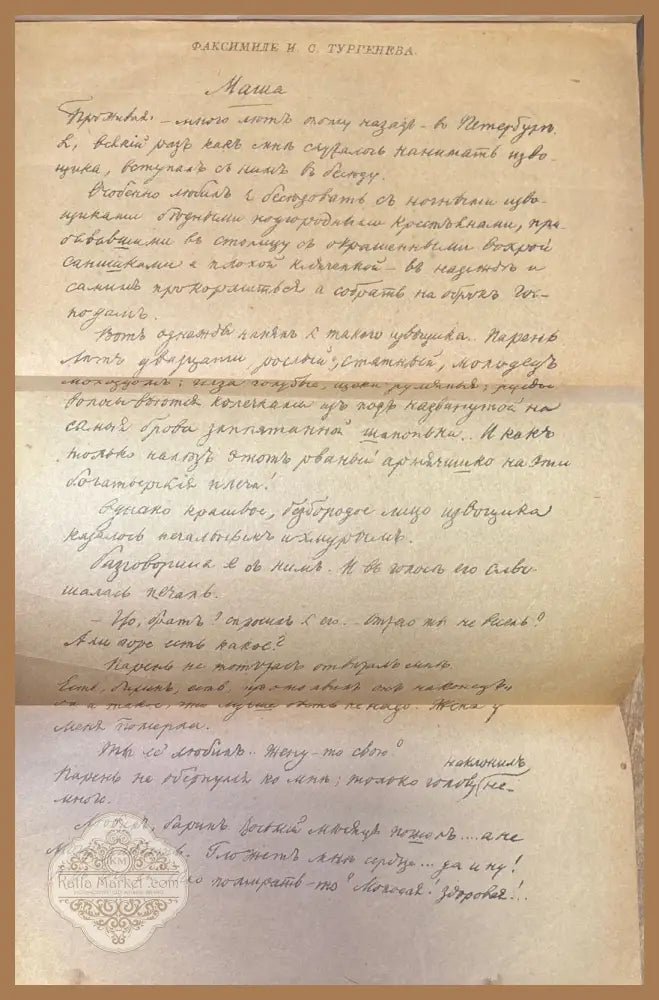 ФАКСИМИЛЕ И. С. ТУРГЕНЕВА.
Маша
Проживая – много лѣтъ тому назадъ – въ Петербургѣ,
я, всякій разъ какъ мнѣ случалось нанимать изво-
щика, вступалъ съ нимъ въ бесѣду.
Особенно любилъ я бесѣдовать съ ночными изво-
щиками бѣдными подгородными крестьянами, при-
бывавшими въ столицу съ окрашенными вохрой
санишками и плохой клячёнкой – въ надеждѣ и
самимъ прокормиться и собрать на оброкъ гос-
подамъ.
Вотъ однажды нанялъ я такого извощика.. Парень
лѣтъ двадцати, рослый, статный, молодецъ
молодцомъ; глаза голубые, щеки румяныя; русые
волосы вьются колечками изъ подъ надвинутой на
самыя брови заплатанной шапоньки.. И какъ
только налѣзъ этотъ рваный армячишко на эти
богатырскія плеча!
Однако красивое, безбородое лицо извощика
казалось печальнымъ и хмурымъ.
Разговорился я съ нимъ. И въ голосѣ его слы-
шалась печаль.
– Что, братъ? спросилъ я его. – отчего ты не веселъ?
Али горе есть какое?
Парень не тотчасъ отвѣчалъ мнѣ.
Есть, баринъ, есть,
да и такое, что лучше быть не надо. Жена у
меня померла.
Ты её любилъ.. жену-то свою?
наклонилъ
Парень не обернулся ко мнѣ; только голову не-
много.
баринъ. Восьмой мѣсяцъ пошолъ.... а не
Гложетъ мнѣ сердце... да и ну!
помирать-то? Молодая! Здоровая!..
KM
Kalfa Market.com